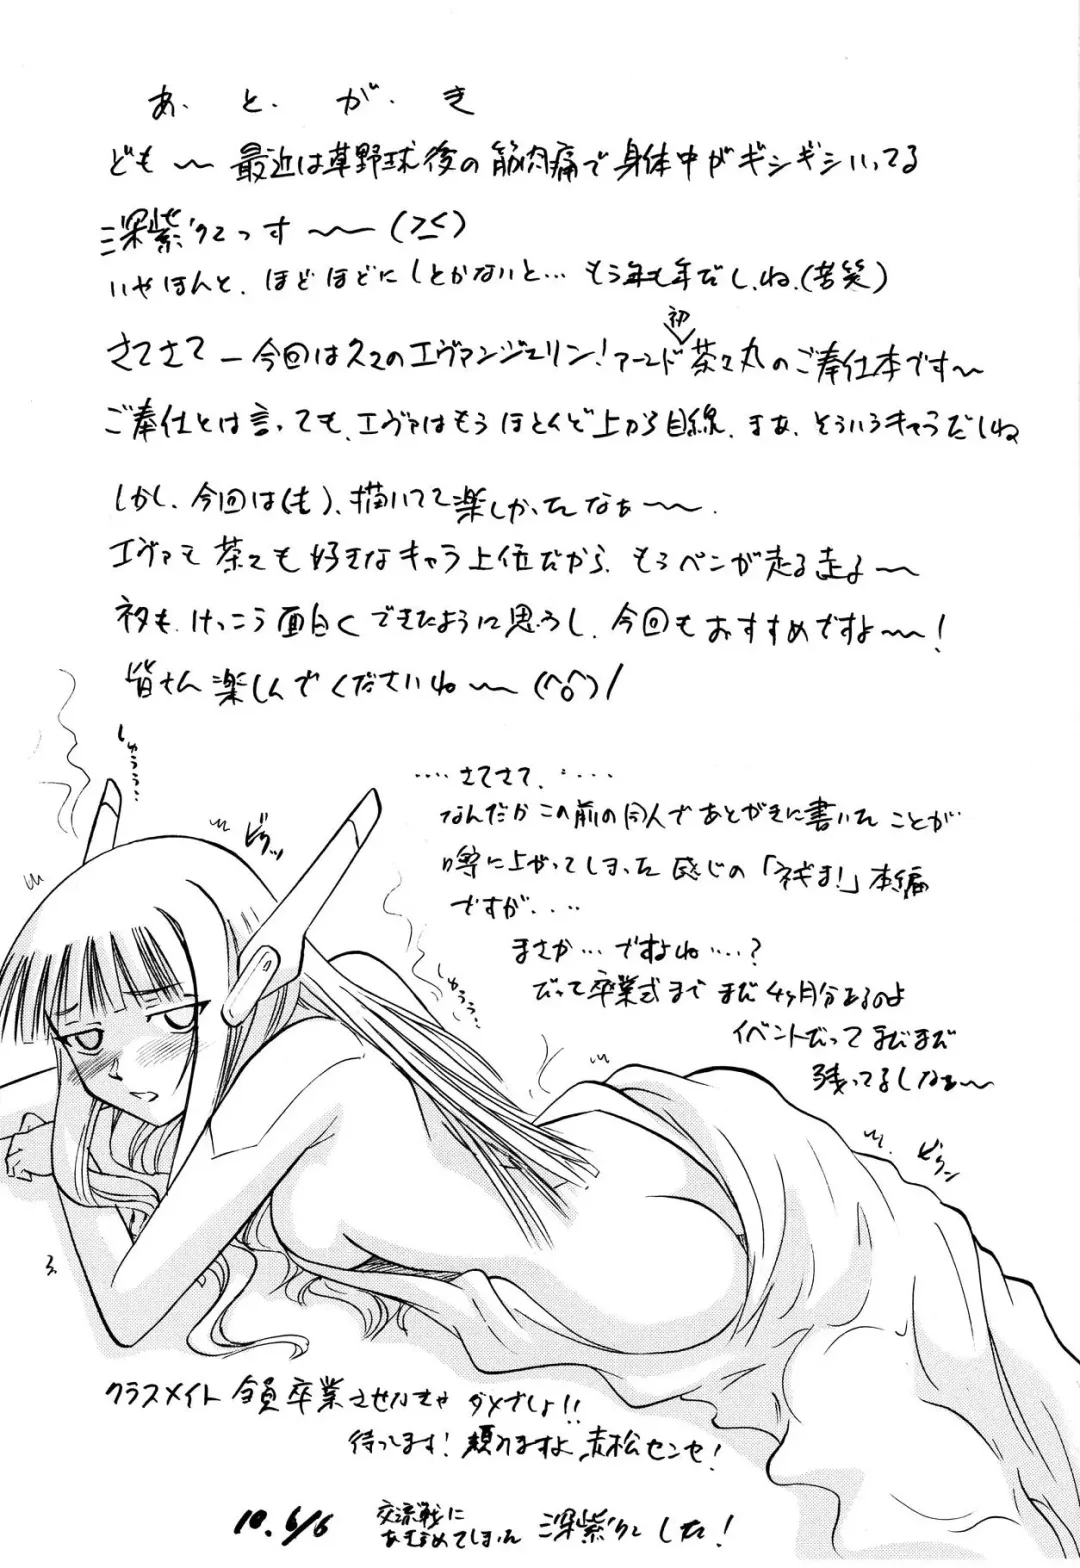 あ、と、が、き
ども〜最近は草野球後の筋肉痛で身体中がギシギシいってる
深紫でっす〜(>_<)
いやほんと、ほどほどにしとかないと…もう年も年だしね、(苦笑)
さてさて−今回は久々のエヴァンジェリン!アーンド初茶々丸のご奉仕本です〜
ご奉仕とは言っても、エヴァはもうほとんど上から目線、まあ、そういうキャラだしね
しかし、今回は(も)、描いてて楽しかったなぁ〜。
エヴァも茶々も好きなキャラ上位だから、もうペンが走る走る〜
ネタも、けっこう面白くできたように思うし、今回もおすすめですよ〜!
皆さん楽しんでくださいね〜(^o^)/
しゅううう…
‥‥さてさて、‥‥‥
なんだかこの前の同人であとがきに書いたことが
噂に上がってしまった感じの「ネギま!」本編
ですが‥‥
まさか…ですよね…?
だって卒業式までまだ4ヶ月分あるのよ
イベントだってまだまだ
残ってるしなぁ〜
ビクッ
ビクン
クラスメイト全員卒業させなきゃダメでしょ!!
待ってます!頼りますよ、赤松センセ!
10.6/6
交流戦に
深紫でした!